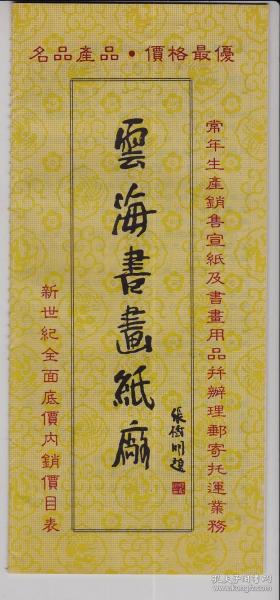 名品產品•價格最優
常年生產銷售宣紙及書畫用品并辦理郵寄托運業務
雲海書畫紙廠
新世紀全面底價內銷價目表